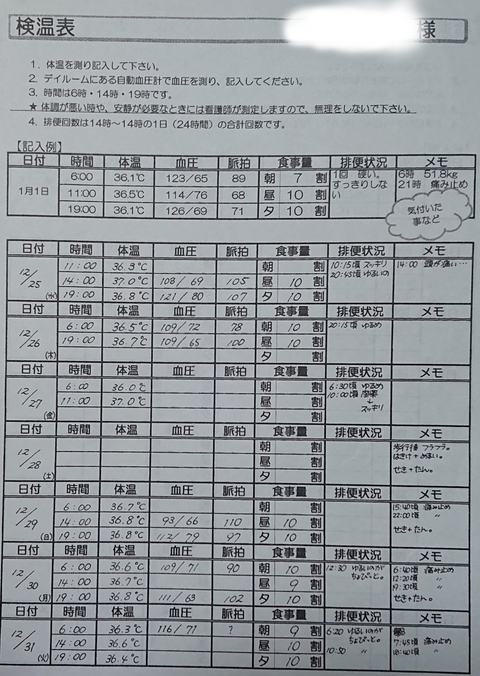 検温表 様
1. 体温を測り記入して下さい。
2. デイルームにある自動血圧計で血圧を測り、記入してください。
3. 時間は6時・14時・19時です。
★ 体調が悪い時や、安静が必要なときには看護師が測定しますので、無理をしないで下さい。
4. 排便回数は14時〜14時の1日(24時間)の合計回数です。
【記入例】
日付 時間 体温 血圧 脈拍 食事量 排便状況 メモ
1月1日 6:00 36.1℃ 123/65 89 朝 7 割 1回 硬い。 6時 51.8kg
11:00 36.5℃ 114/76 68 昼 10 割 すっきりしない 21時 痛み止め
19:00 36.1℃ 126/69 71 夕 10 割
気付いた
事など
日付 時間 体温 血圧 脈拍 食事量 排便状況 メモ
12/25 (水) 11:00 36.3℃ 朝 割 10:15頃 スッキリ 14:00 頭が痛い…
14:00 37.0℃ 108/69 105 昼 10 割 20:45頃 ゆるいの
19:00 36.8℃ 121/80 107 夕 10 割
日付 時間 体温 血圧 脈拍 食事量 排便状況 メモ
12/26 (木) 6:00 36.5℃ 109/72 78 朝 10 割 20:15頃 ゆるめ
19:00 36.7℃ 109/65 100 昼 10 割
夕 割
日付 時間 体温 血圧 脈拍 食事量 排便状況 メモ
12/27 (金) 6:00 36.0℃ 朝 割 6:30頃 ゆるめ
11:00 37.0℃ 昼 割 10:00頃
夕 割 ↓スッキリ
日付 時間 体温 血圧 脈拍 食事量 排便状況 メモ
12/28 (土) 朝 割 歩行後 フラフラ。
昼 割 はきけ+めまい。
夕 割 せき+たん。
日付 時間 体温 血圧 脈拍 食事量 排便状況 メモ
12/29 (日) 6:00 36.7℃ 朝 割 15:40頃 痛み止め
14:00 36.8℃ 93/66 110 昼 10 割 22:00頃 〃
19:00 36.8℃ 112/79 97 夕 10 割 せき+たん。
12/30 (月) 6:00 36.6℃ 109/71 90 朝 10 割 12:30 ゆるいのが 6:40頃 痛み止め
14:00 36.7℃ 昼 9 割 ちょびっと。 12:20頃 〃
19:00 36.8℃ 111/63 102 夕 10 割 19:30頃 〃
せき+たん。
12/31 (火) 6:00 36.3℃ 116/71 ? 朝 9 割 6:20 ゆるいのが
14:00 36.6℃ 昼 10 割 ちょびっと。 7:45頃 痛み止め
19:00 36.4℃ 夕 10 割 10:50 〃 18:40頃 〃